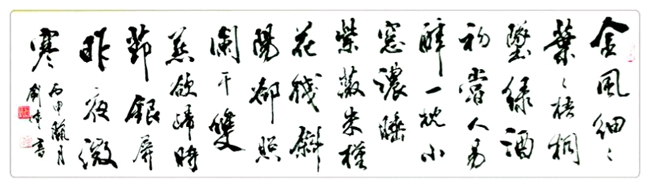 金風細〻
葉〻梧桐
墜緑酒
初嘗人易
醉一枕小
窓濃睡
紫薇朱槿
花殘斜
陽卻照
闌干雙
燕欲歸時
節銀屏
昨夜微
寒
丙申蘭月
劉書